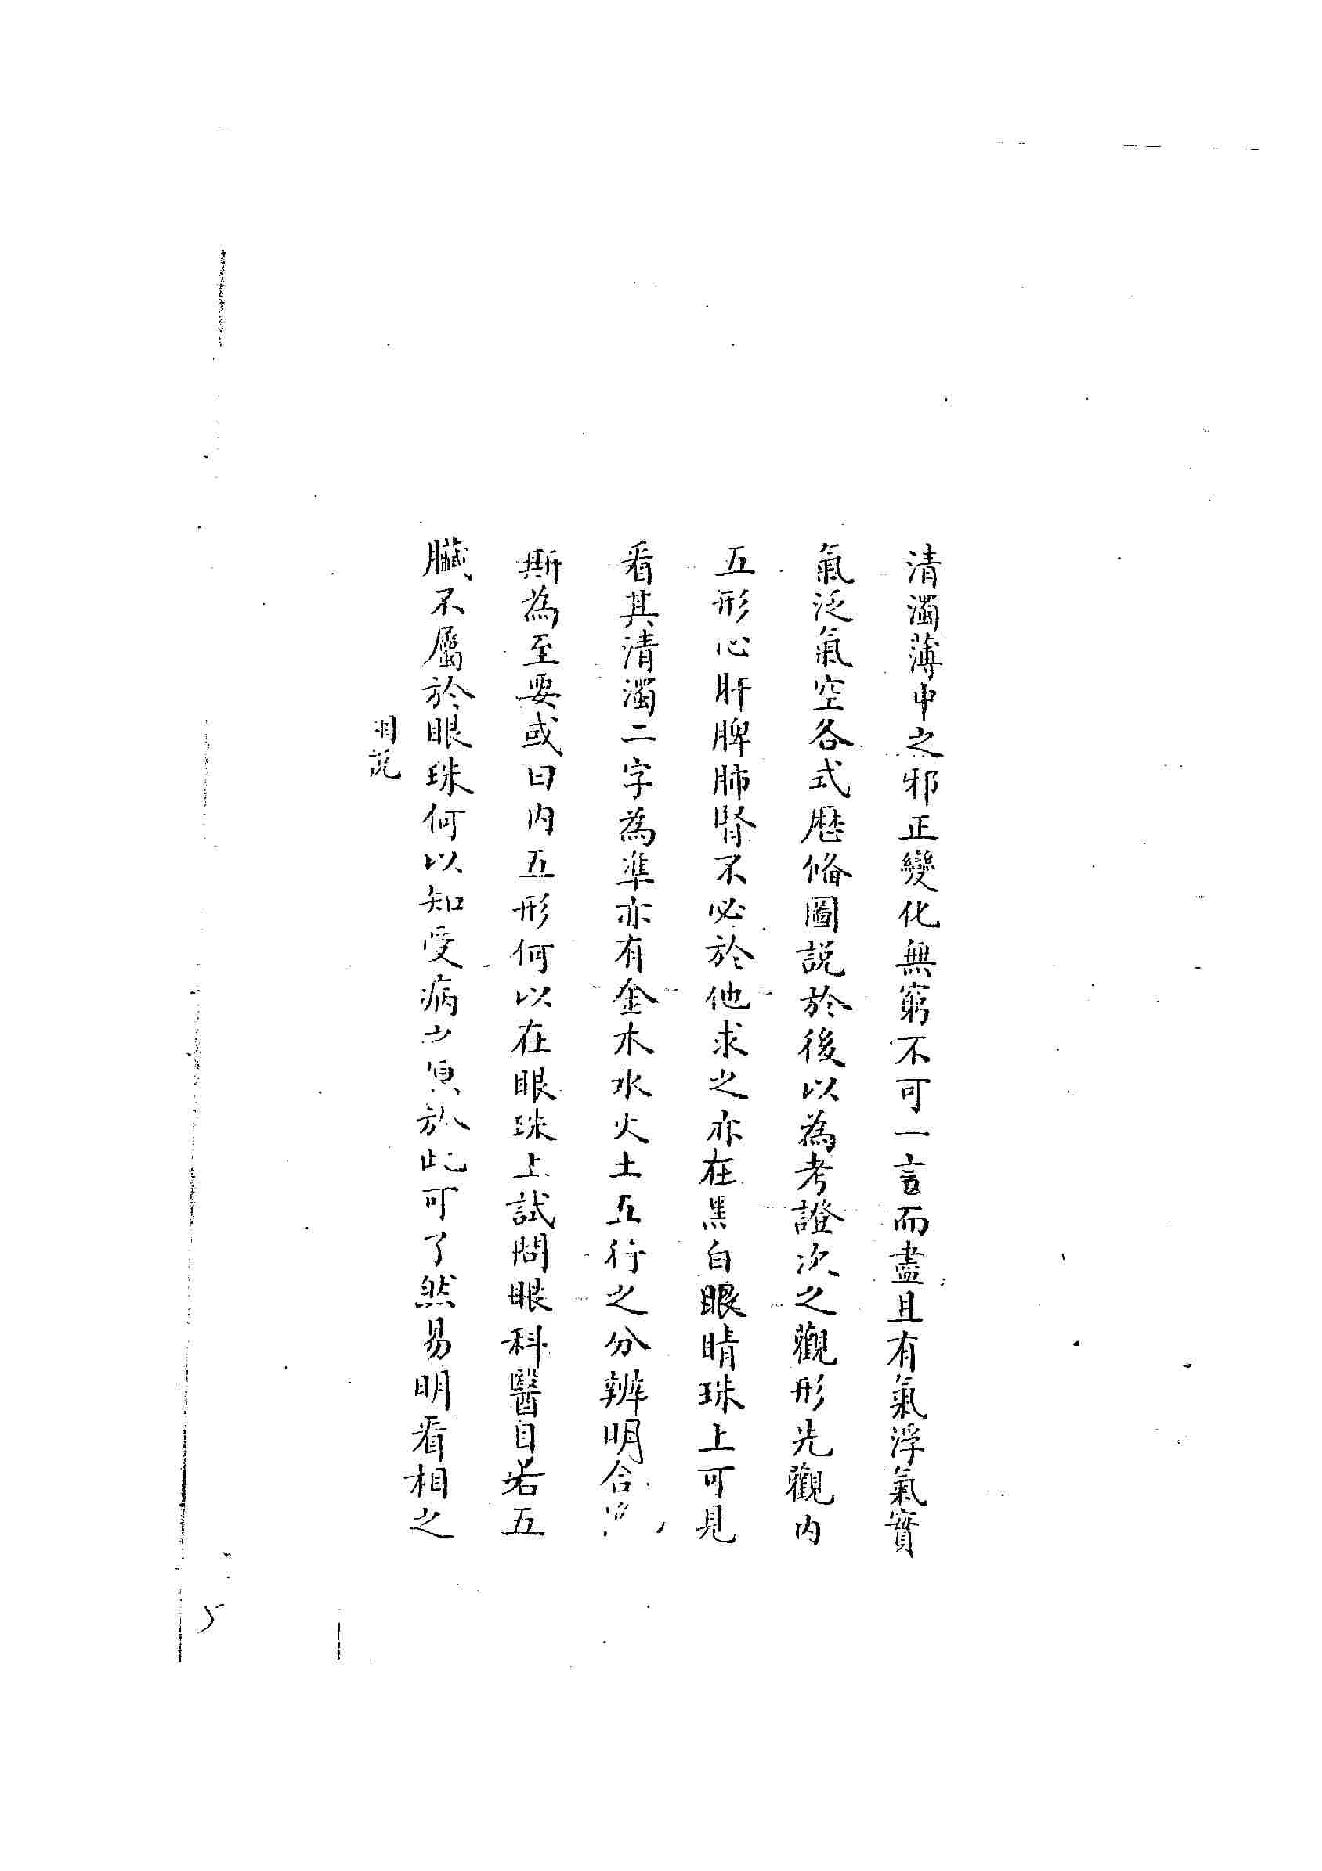 清濁薄中之邪正變化無窮不可一言而盡且有氣浮氣實
氣泛氣空各式歷俻圖説於後以為考證次之觀形先觀内
五形心肝脾肺腎不必於他求之亦在黑白眼睛珠上可見
看其清濁二字為準亦有金木水火土五行之分辨明合
斯為至要或曰内五形何以在眼珠上試問眼科醫目若五
臟不屬於眼珠何以知受病之原於此可了然易明看相之
相説
5